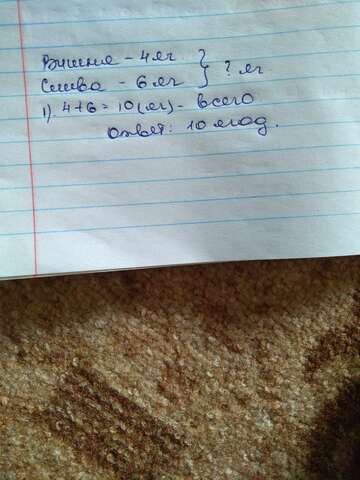 Вишня - 4 яг }
Слива - 6 яг } ? яг
1). 4+6=10 (яг) - всего
Ответ: 10 ягод.